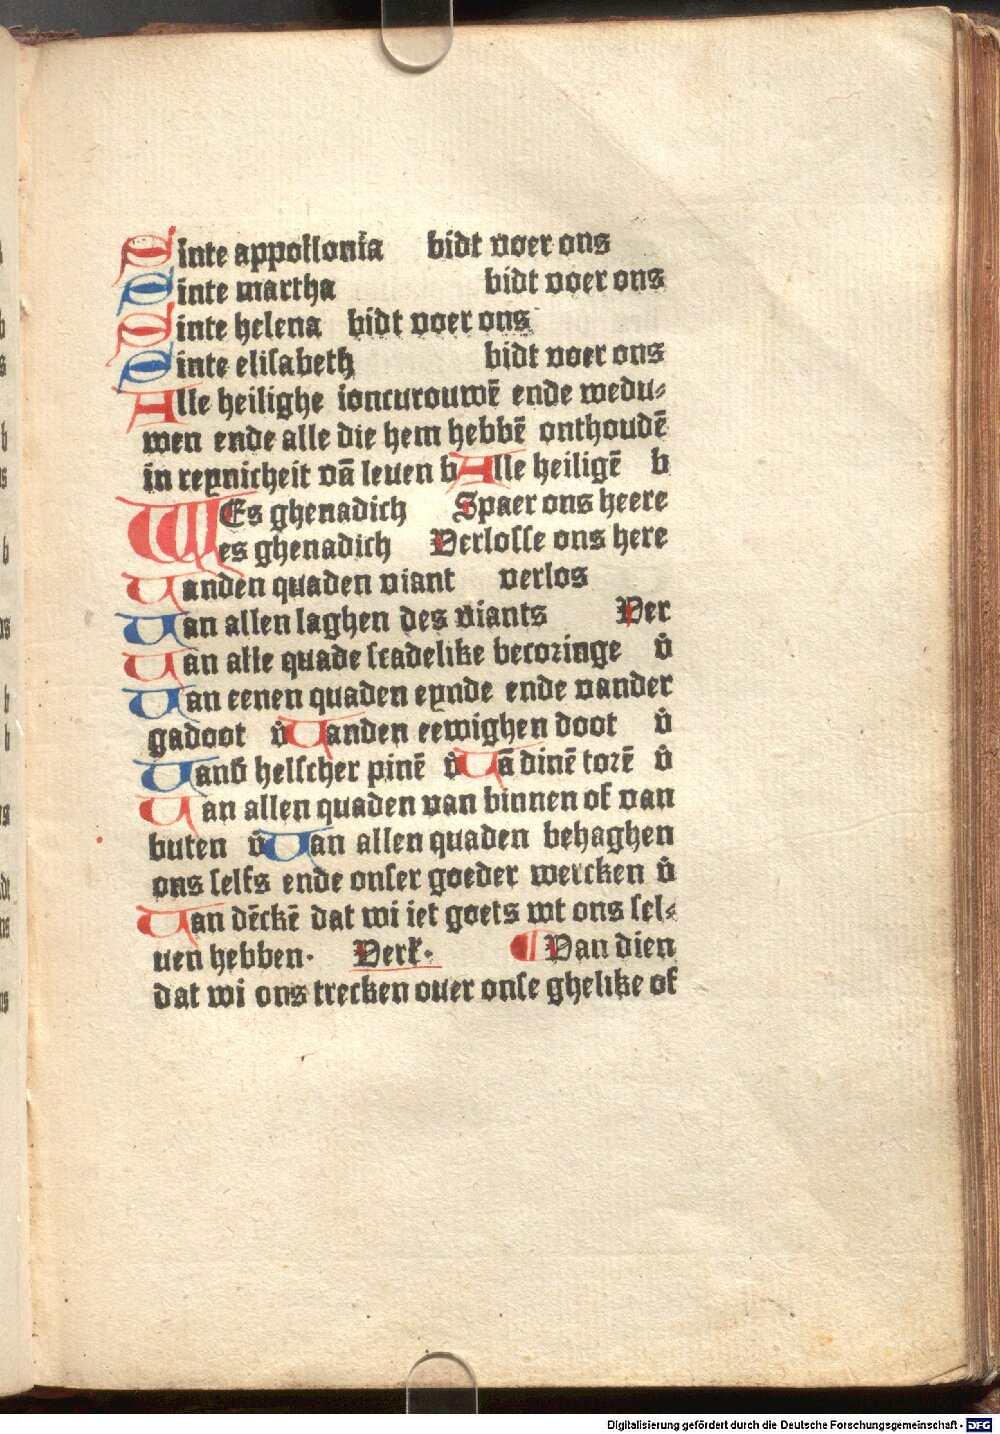 Sinte appollonia bidt voer ons
Sinte martha bidt voer ons
Sinte helena bidt voer ons
Sinte elisabeth bidt voer ons
Alle heilighe ioncurouwē ende wedu⸗
wen ende alle die hem hebbē onthoudē
in reynicheit vā leuen b Alle heiligē b
WEs ghenadich Spaer ons heere
Wes ghenadich Verlosse ons here
Vanden quaden viant verlos
Van allen laghen des viants Ver
Van alle quade scadelike becoringe v̄
Van eenen quaden eynde ende vander
gadoot v̄ Vanden eewighen doot v̄
Vanđ helscher pinē v̄ Vā dinē torē v̄
Van allen quaden van binnen of van
buten v̄ Van allen quaden behaghen
ons selfs ende onser goeder wercken v̄
Van dēckē dat wi iet goets wt ons sel⸗
uen hebben. Verl. Van dien
dat wi ons trecken ouer onse ghelike of
Digitalisierung gefördert durch die Deutsche Forschungsgemeinschaft - DFG